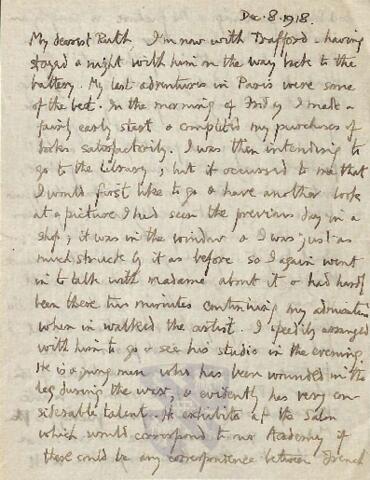 Dec. 8. 1918.
My dearest Ruth, I'm now with Trafford - having
stayed a night with him on the way back to the
battery. My last adventures in Paris were some
of the best. In the morning of Friday I made a
fairly early start & completed my purchases of
books satisfactorily. I was then intending to
go to the Library; but it occurred to me that
I would first like to go & have another look
at a picture I had seen the previous day in a
shop; it was in the window & I was just as
much struck by it as before so I again went
in to talk with madame about it & had hardly
been there two minutes continuing my admiration
when in walked the artist. I speedily arranged
with him to go & see his studio in the evening.
He is a young man who has been wounded in the
leg during the war, & evidently has very con-
siderable talent. He exhibits at the Salon
which would correspond to our Academy if
there could be any correspondence between French